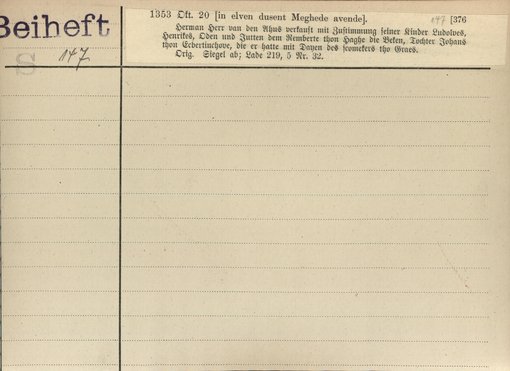 Beiheft
S
147
1353 Okt. 20 [in elven dusent Meghede avende]. 147 [376
Herman Herr van den Ahus verkauft mit Zustimmung seiner Kinder Ludolves,
Henrikes, Oden und Jutten dem Remberte thon Haghe die Beken, Tochter Johans
thon Ecbertinchove, die er hatte mit Dayen des sromekers tho Graes.
Orig. Siegel ab; Lade 219, 5 Nr. 32.